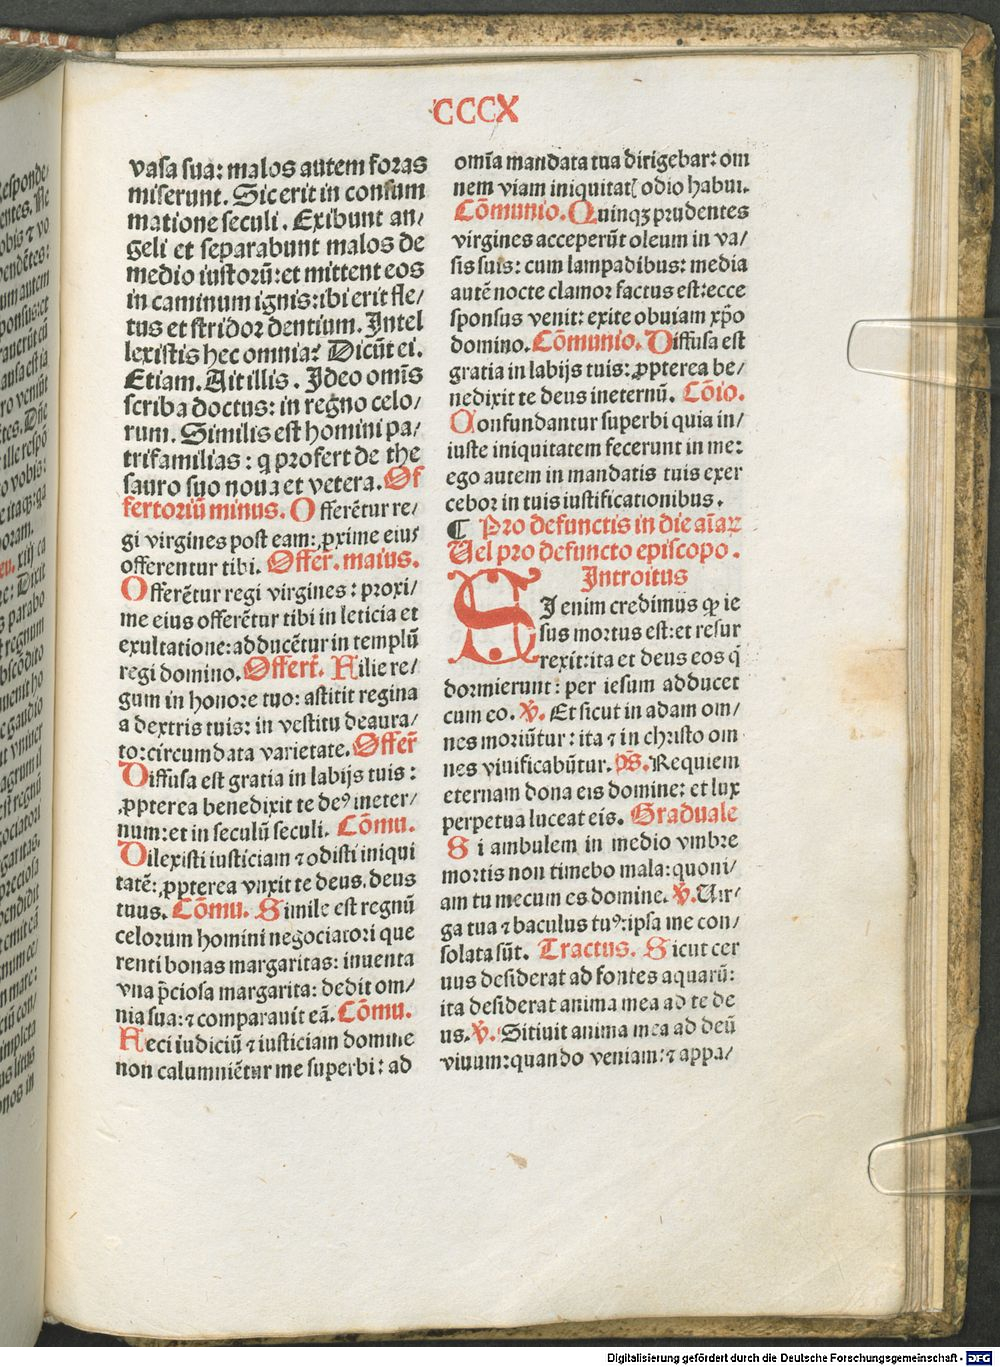 CCCX
vasa sua: malos autem foras
miserunt. Sic erit in consum
matione seculi. Exibunt an/
geli et separabunt malos de
medio iustorū: et mittent eos
in caminum ignis: ibi erit fle/
tus et stridor dentium. Intel
lexistis hec omnia? Dicūt ei.
Etiam. Ait illis. Ideo omīs
scriba doctus: in regno celo/
rum. Similis est homini pa/
trifamilias: q̇ profert de the
sauro suo noua et vetera. Of
fertoriū minus. Offerētur re/
gi virgines post eam: ꝓxime eius
offerentur tibi. Offer. maius.
Offerētur regi virgines: proxi/
me eius offerētur tibi in leticia et
exultatione: adducētur in templū
regi domino. Offert̄. Filie re/
gum in honore tuo: astitit regina
a dextris tuis: in vestitu deaura/
to: circumdata varietate. Offer̄
Diffusa est gratia in labijs tuis:
ꝓpterea benedixit te deꝰ ineter/
num: et in seculū seculi. Cōmu.
Dilexisti iusticiam ⁊ odisti iniqui
tatē: ꝓpterea vnxit te deus, deus
tuus. Cōmu. Simile est regnū
celorum homini negociatori que
renti bonas margaritas: inuenta
vna p̄ciosa margarita: dedit om/
nia sua: ⁊ comparauit eā. Cōmu.
Feci iudiciū ⁊ iusticiam domine
non calumniētur me superbi: ad
omīa mandata tua dirigebar: om
nem viam iniquitatꝭ odio habui.
Cōmunio. Quinqꝫ prudentes
virgines acceperūt oleum in va/
sis suis: cum lampadibus: media
autē nocte clamor factus est: ecce
sponsus venit: exite obuiam xp̄o
domino. Cōmunio. Diffusa est
gratia in labijs tuis: ꝓpterea be/
nedixit te deus ineternū. Cōio.
Confundantur superbi quia in/
iuste iniquitatem fecerunt in me:
ego autem in mandatis tuis exer
cebor in tuis iustificationibus.
¶ Pro defunctis in die aīaꝝ
Vel pro defuncto episcopo.
Introitus
SI enim credimus ꝙ ie
sus mortus est: et resur
rexit: ita et deus eos q̄
dormierunt: per iesum adducet
cum eo. ℣. Et sicut in adam om/
nes moriūtur: ita ⁊ in christo om
nes viuificabūtur. p̄s. Requiem
eternam dona eis domine: et lux
perpetua luceat eis. Graduale
Si ambulem in medio vmbre
mortis non timebo mala: quoni/
am tu mecum es domine. ℣. Uir/
ga tua ⁊ baculus tuꝰ: ipsa me con/
solata sūt. Tractus. Sicut cer
uus desiderat ad fontes aquarū:
ita desiderat anima mea ad te de
us. ℣. Sitiuit anima mea ad deū
viuum: quando veniam: ⁊ appa/
Digitalisierung gefördert durch die Deutsche Forschungsgemeinschaft - DFG